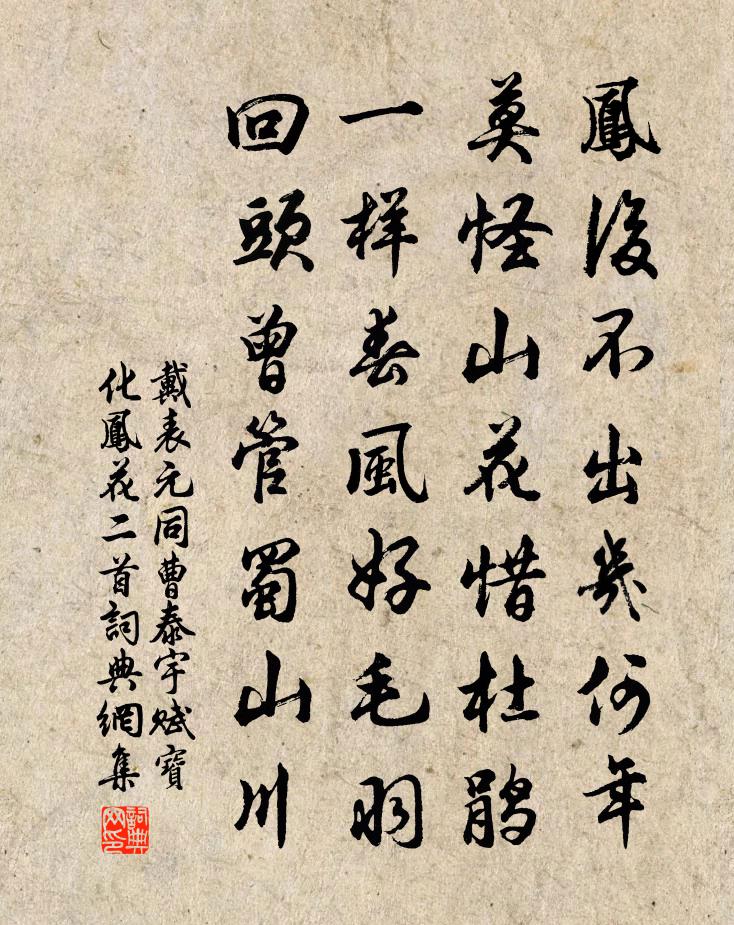 鳳後不出幾何年
莫怪山花惜杜鵑
一樣春風好毛羽
回頭曾管蜀山川
戴表元同曹泰宇賦寶
化鳳花二首詞典網集
詞典
网印